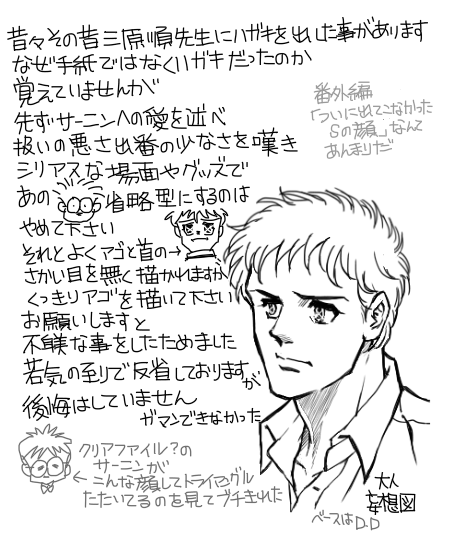 昔々その昔三原順先生にハガキを出した事があります
なぜ手紙ではなくハガキだったのか
覚えていませんが
先ずサーニンへの愛を述べ
扱いの悪さ出番の少なさを嘆き
シリアスな場面やグッズで
あの 省略型にするのは
やめて下さい
それとよくアゴと首の→
さかい目を無く描かれますが
くっきりアゴを描いて下さい
お願いしますと
不躾な事をしたためました
若気の至りで反省しておりますが
後悔はしていません
ガマンできなかった
番外編
「ついに出てこなかった
Sの顔」なんて
あんまりだ
クリアファイル?の
サーニンが
←こんな顔してトライアングル
たたいてるのを見てブチきれた
大人
妄想図
ベースはD.D